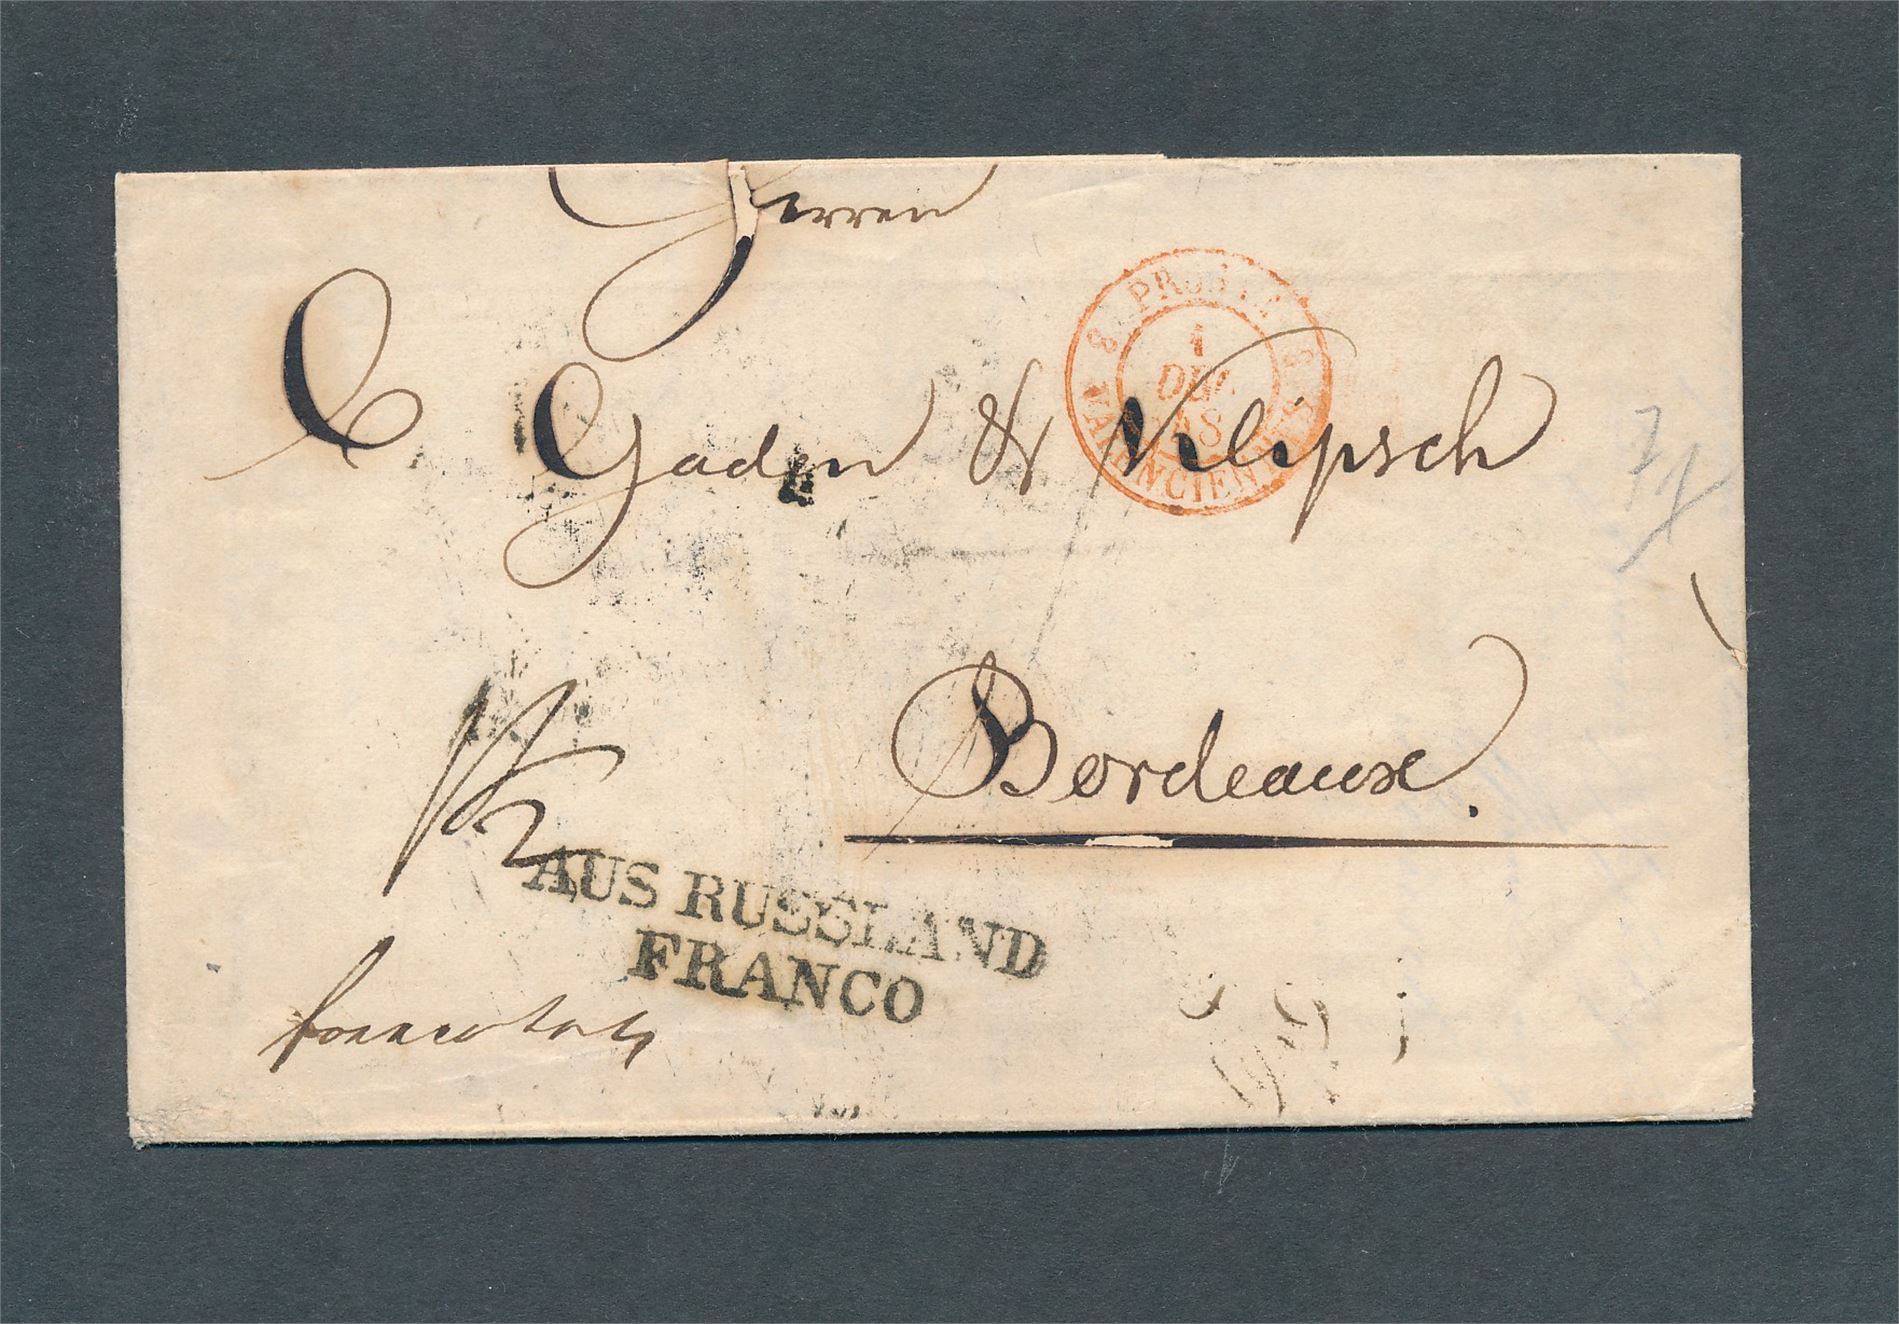 Herren
Gaden & Klipsch
PRUSSE
3 3
1
DEC.
48
VALENCIENNES
Bordeaux.
AUS RUSSLAND
FRANCO
franco